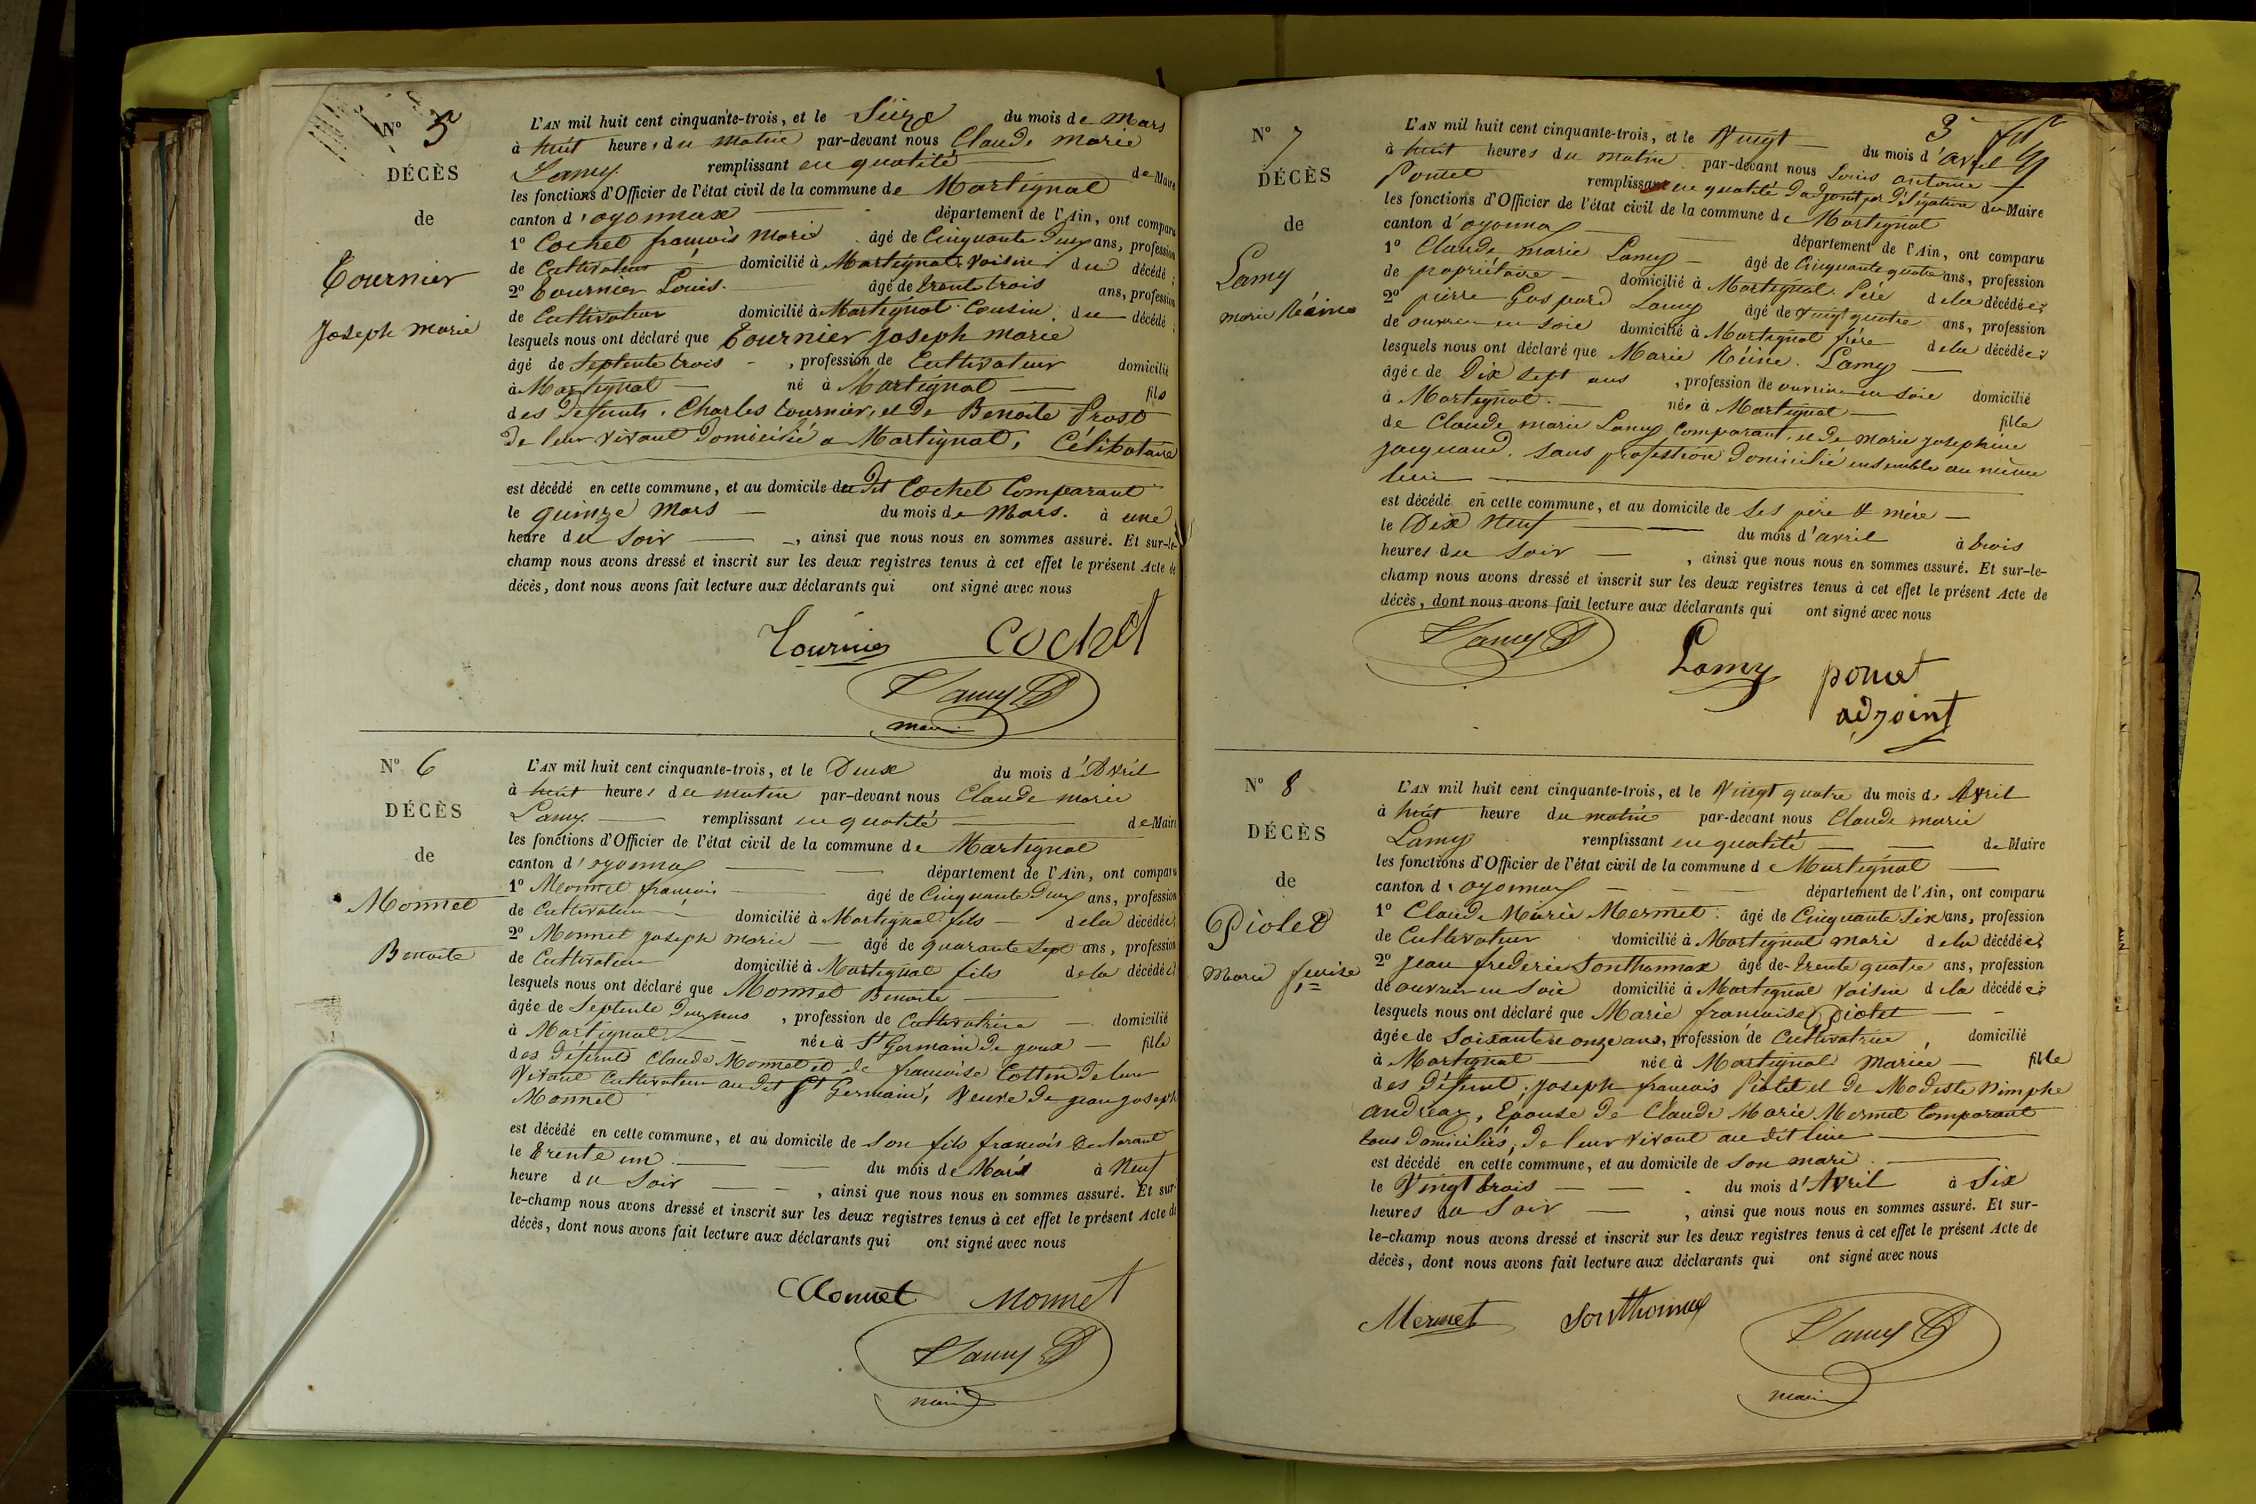 N° 5
DÉCÈS
de
Tournier
Joseph Marie
L'AN mil huit cent cinquante-trois, et le Seize du mois de Mars
à huit heures du matin par-devant nous Claude Marie
Lamy remplissant en qualité de Maire
les fonctions d'Officier de l'état civil de la commune de Martignat
canton d'oyonnax département de l'Ain, ont comparu
1° Cochet françois Marie âgé de Cinquante Deux ans, profession
de Cultivateur domicilié à Martignat voisin du décédé;
2° Tournier Louis. âgé de trente trois ans, profession
de Cultivateur domicilié à Martignat Cousin du décédé;
lesquels nous ont déclaré que Tournier Joseph Marie
âgé de Septente trois, profession de Cultivateur domicilié
à Martignat né à Martignat fils
des défunts, Charles tournier, et de Benoite Prost
de leur vivant domicilié a Martignat, Célibataire
est décédé en cette commune, et au domicile du dit Cochet Comparant
le quinze Mars du mois de Mars. à une
heure du Soir, ainsi que nous nous en sommes assuré. Et sur-le-
champ nous avons dressé et inscrit sur les deux registres tenus à cet effet le présent Acte de
décès, dont nous avons fait lecture aux déclarants qui ont signé avec nous
Tournier Cochet
Lamy
maire
N° 6
DÉCÈS
de
Monnet
Benoite
L'AN mil huit cent cinquante-trois, et le Deux du mois d'Avril
à huit heures du matin par-devant nous Claude Marie
Lamy remplissant en qualité de Maire
les fonctions d'Officier de l'état civil de la commune de Martignat
canton d'oyonnax département de l'Ain, ont comparu
1° Monnet françois âgé de Cinquante Deux ans, profession
de Cultivateur domicilié à Martignat fils de la décédée;
2° Monnet Joseph Marie âgé de quarante Sept ans, profession
de Cultivateur domicilié à Martignat fils de la décédée;
lesquels nous ont déclaré que Monnet Benoite
âgée de Septente Deux ans, profession de Cultivatrice domicilié
à Martignat née à St Germain De Joux fille
des défunts Claude Monnet et de françoise Cottin De leur
Vivant Cultivateur au dit St Germain, Veuve De Jean Joseph
Monnet
est décédé en cette commune, et au domicile de son fils françois Déclarant
le trente un du mois de Mars à Neuf
heure du Soir, ainsi que nous nous en sommes assuré. Et sur-
le-champ nous avons dressé et inscrit sur les deux registres tenus à cet effet le présent Acte de
décès, dont nous avons fait lecture aux déclarants qui ont signé avec nous
Monnet Monnet
Lamy
maire
3
N° 7
DÉCÈS
de
Lamy
Marie Réine
L'AN mil huit cent cinquante-trois, et le Vingt du mois d'avril
à huit heures du matin par-devant nous Louis antoine
Poncet remplissant en qualité d'adjoint par Délégation du Maire
les fonctions d'Officier de l'état civil de la commune de Martignat
canton d'oyonnax département de l'Ain, ont comparu
1° Claude Marie Lamy âgé de Cinquante quatre ans, profession
de propriétaire domicilié à Martignat Père de la décédée;
2° pierre Gaspard Lamy âgé de vingt quatre ans, profession
de ouvrier en soie domicilié à Martignat frère de la décédée;
lesquels nous ont déclaré que Marie Réine. Lamy
âgée de Dix Sept ans, profession de ouvrière en Soie domicilié
à Martignat. née à Martignat fille
de Claude Marie Lamy Comparant, et de Marie Josephine
Jacquand, sans profession domicilié ensemble au même
lieu
est décédé en cette commune, et au domicile de ses père & mère
le Dix Neuf du mois d'avril à trois
heures du Soir, ainsi que nous nous en sommes assuré. Et sur-le-
champ nous avons dressé et inscrit sur les deux registres tenus à cet effet le présent Acte de
décès, dont nous avons fait lecture aux déclarants qui ont signé avec nous
Lamy Lamy poncet
adjoint
N° 8
DÉCÈS
de
Piolet
Marie fçoise
L'AN mil huit cent cinquante-trois, et le Vingt quatre du mois d'Avril
à huit heure du matin par-devant nous Claude Marie
Lamy remplissant en qualité de Maire
les fonctions d'Officier de l'état civil de la commune de Martignat
canton d'oyonnax département de l'Ain, ont comparu
1° Claude Marie Mermet. âgé de Cinquante Six ans, profession
de Cultivateur domicilié à Martignat mari de la décédée;
2° Jean frederic Sonthonnax âgé de trente quatre ans, profession
de ouvrier en Soie domicilié à Martignat Voisin de la décédée;
lesquels nous ont déclaré que Marie francoise Piolet
âgée de Soixante et onze ans, profession de Cultivatrice, domicilié
à Martignat née à Martignat Mariée fille
des défunt, Joseph francois Piolet et De Modeste Nimphe
andréax, Epouse de Claude Marie Mermet Comparant
tous domiciliés, de leur vivant au dit lieu
est décédé en cette commune, et au domicile de Son mari
le Vingt trois du mois d'Avril à Six
heures du Soir, ainsi que nous nous en sommes assuré. Et sur-
le-champ nous avons dressé et inscrit sur les deux registres tenus à cet effet le présent Acte de
décès, dont nous avons fait lecture aux déclarants qui ont signé avec nous
Mermet Sonthonnax Lamy
maire